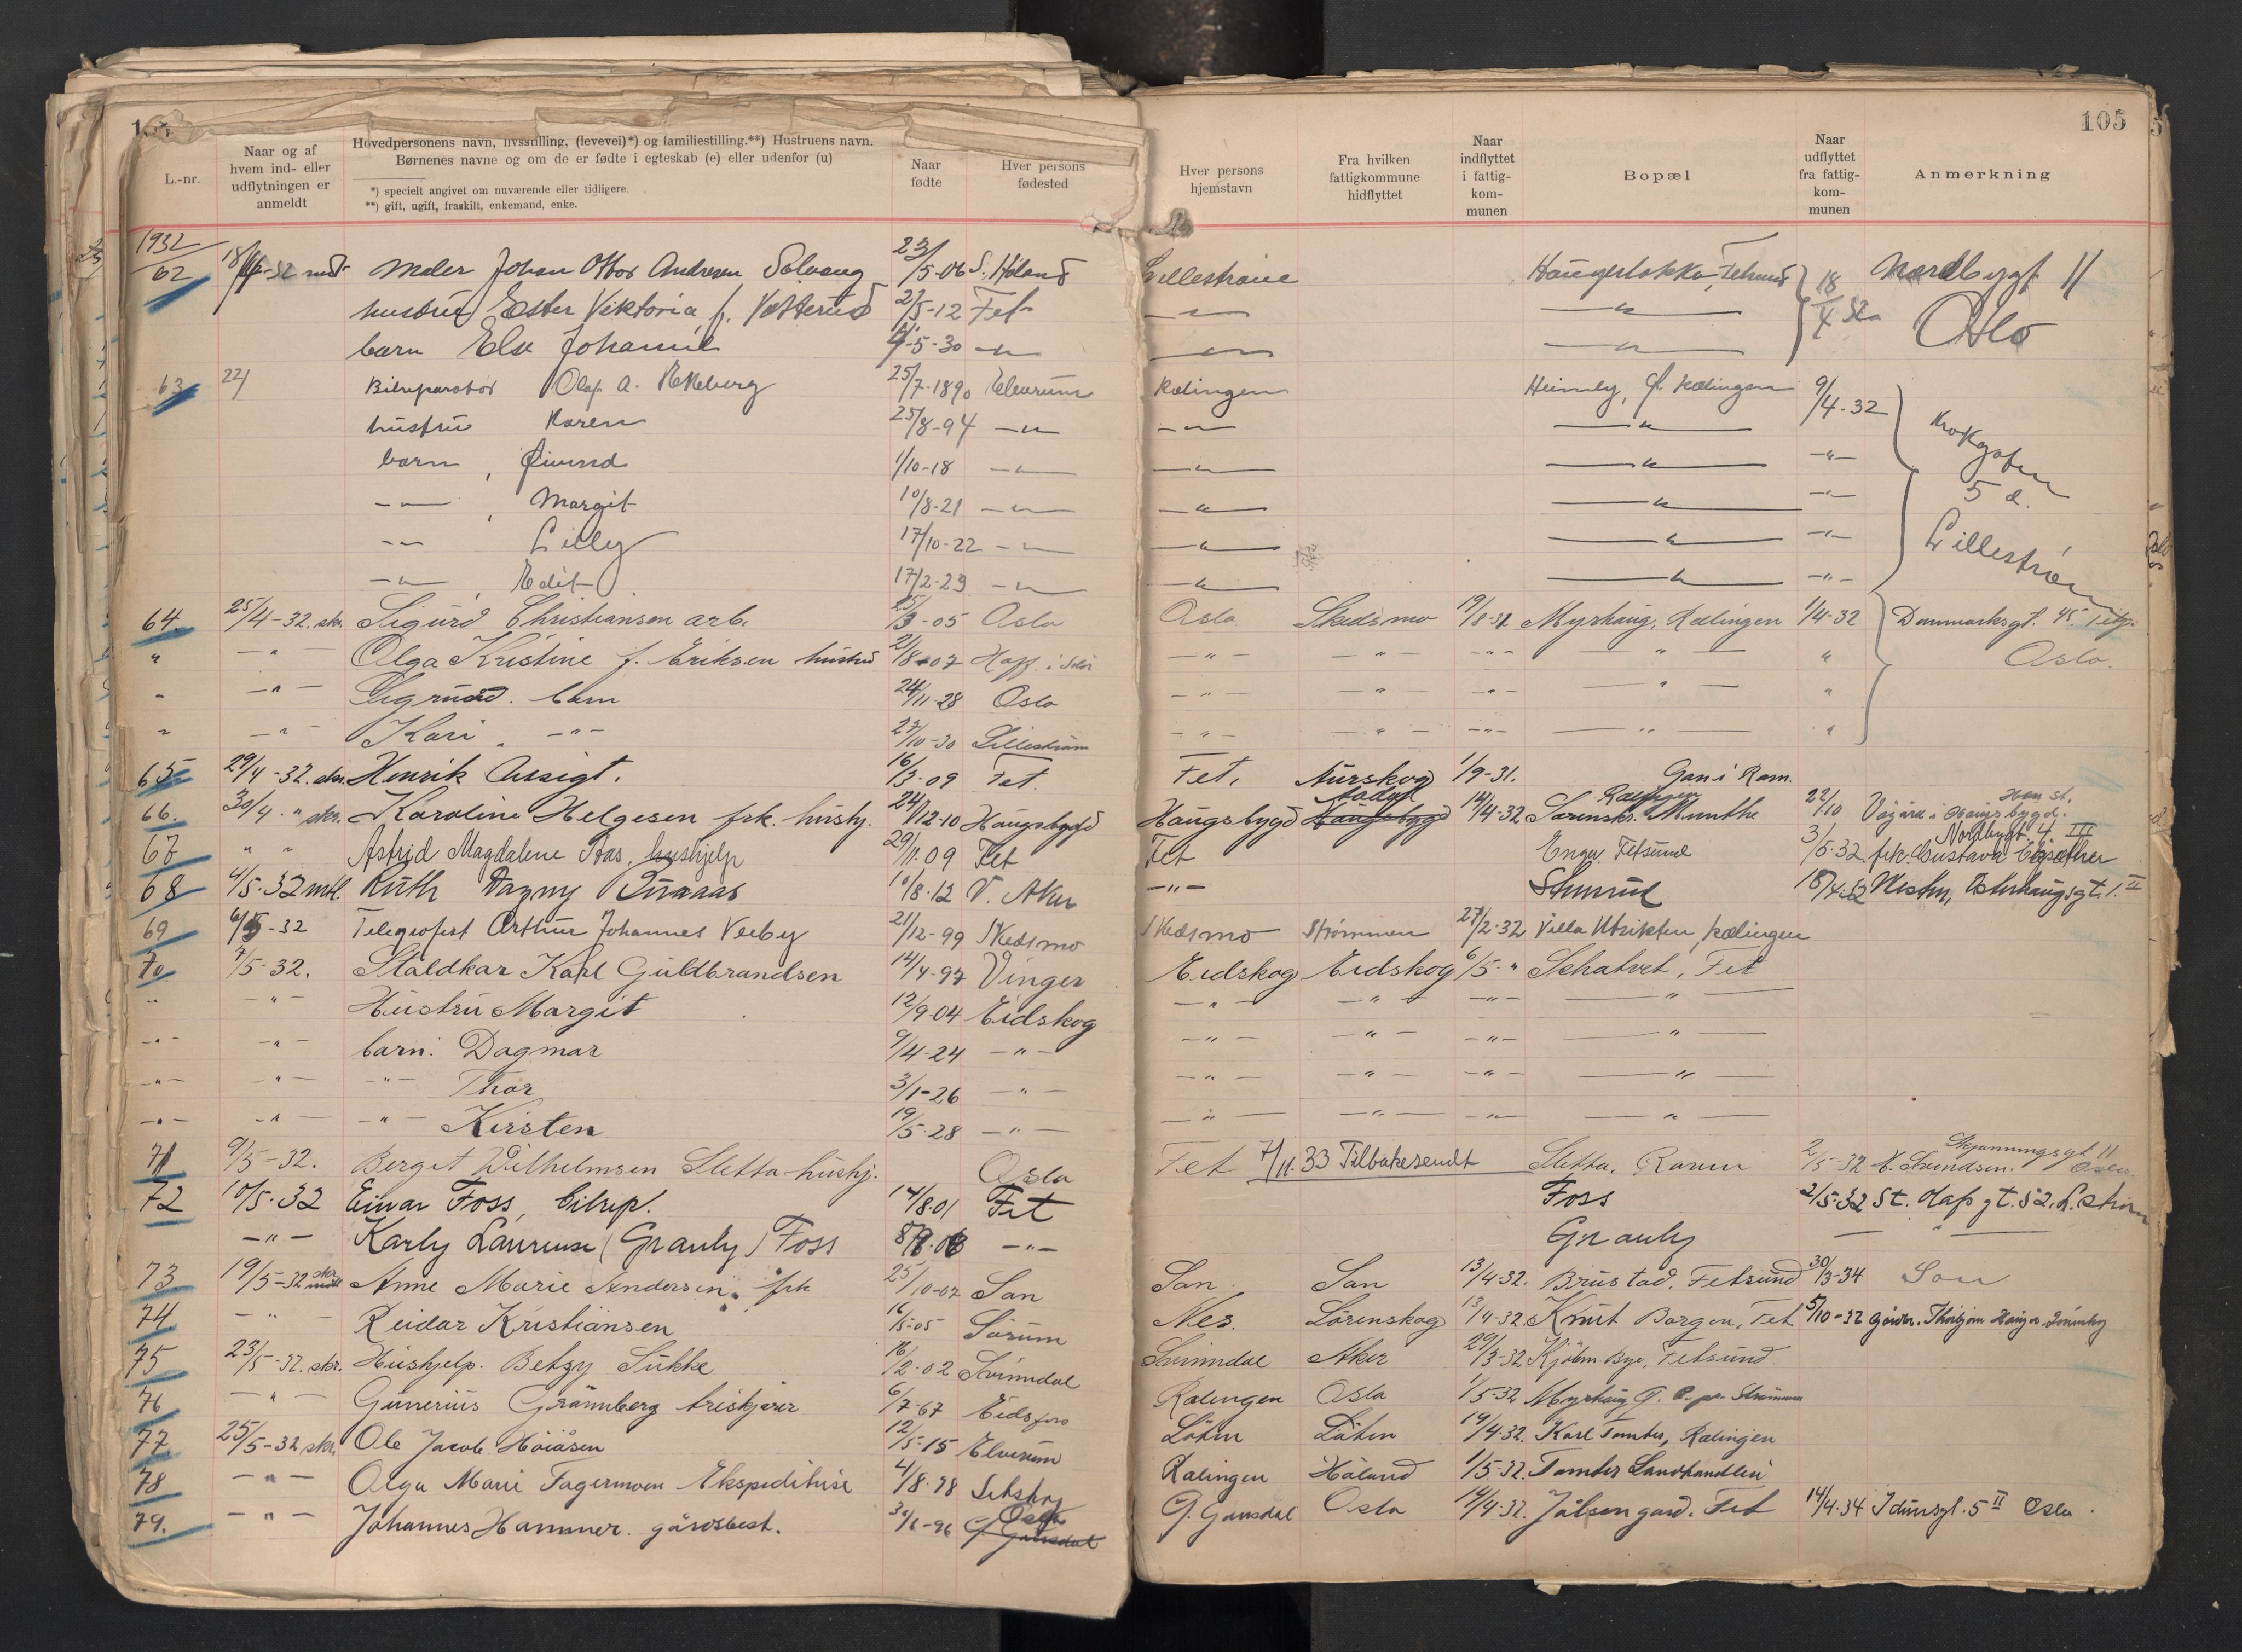 105
L.-nr.
Naar og af hvem ind- eller udflytningen er anmeldt
Hovedpersonens navn, livsstilling, (levevei)*) og familiestilling.**) Hustruens navn.
Børnenes navne og om de er fødte i egteskab (e) eller udenfor (u)
*) specielt angivet om nuværende eller tidligere.
**) gift, ugift, fraskilt, enkemand, enke.
Naar fødte
Hver persons fødested
Hver persons hjemstavn
Fra hvilken fattigkommune hidflyttet
Naar indflyttet i fattig-kom-munen
Bopæl
Naar udflyttet fra fattig-kom-munen
Anmerkning
1932
62 18/4-32 Maler Johan Andresen Solvang 23/5-06 S. Høland Lillestrøm 18/4 32 Nordbygt 11
hustru Ester Viktoria f. 5-12 Fet —"— —"— Oslo
barn Else Johanne 5-30 —"— —"— —"—
63 22/ Bilreparatør Olaf A. Ekeberg 25/7-1890 Elverum Rælingen Heimly, Ø. Rælingen 9/4-32 Krokgaten
hustru Karen 25/8-94 —"— —"— —"—
barn, Øivind 1/10-18 —"— —"— —"— —"— 5 a.
—"—, Margit 10/8-21 —"— —"— —"— —"—
—"— Lilly 17/10-22 —"— —"— —"— —"— Lillestrøm
—"—, Edit 17/2-29 —"— —"— —"— —"—
64. 25/4-32. skr. Sigurd Christiansen arb. 25/3-05 Oslo Oslo Skedsmo 19/8-31 Myrhaug, Rælingen 1/4-32 Danmarksgt. 45
" —"— Olga Kristine f. Eriksen hustru 21/8-07 Hoff. i Solør —"— —"— —"— —"— " Oslo.
" —"— barn 24/11-28 Oslo —"— —"— —"— —"— "
" —"— Kari, —"— 27/10-30 Lillestrøm —"— —"— —"— —"— "
65 29/4-32. skr. Henrik Aasigt. 16/3-09 Fet. Fet, Aurskog 1/9-31. Gan i Ram.
66. 30/4-" skr. Karoline Helgesen frk. hushj. 24/12-10 Haugsbygd Haugsbygd Haugsbygd 14/4-32 Rælingen Sørenskr. Munthe 22/10 Vågård i Haugsbygd. Høn st.
67 " " Astrid Magdalene Aas, hushjelp 29/11-09 Fet Fet Enger Fetsund 3/5-32 frk. Gustava Nordbygt 4 III
68 4/5-32 mtl. Ruth Dagny 10/8-12 V. Aker —"— 18/4-32 Østerhaugsgt. 1. II
69 6/5-32 Telegrafist Arthur Johannes Veeby 21/12-99 Skedsmo Skedsmo Strømmen 27/2-32 Villa Utsikten, Rælingen
70 7/5-32. Staldkar Karl Guldbrandsen 14/4-97 Vinger Eidskog Eidskog 6/5-" Schatvet, Fet
" —"— Hustru Margit 12/9-04 Eidskog —"— —"— —"— —"—
—"— —"— barn: Dagmar 9/4-24 —"— —"— —"— —"— —"—
—"— —"— —"— Thor 3/1-26 —"— —"— —"— —"— —"—
—"— —"— —"— Kirsten 19/5-28 —"— —"— —"— —"— —"—
71 9/5-32. Berget Wilhelmsen Sletta - hushj. Oslo Fet 7/11.33 Tilbakesendt Sletta, 2/5-32 Oslo
72 10/5-32 Einar Foss, bilrep. 14/8-01 Fet Foss 2/5-32 St. Olafs gt. 52. L.strøm
—"— Karly Laurense (Granly) Foss —"— Granly —"—
73 19/5-32 skr. Anne Marie Andersen, frk 25/10-02 Son Son Son 13/4-32. Brustad, Fetsund 30/3-34 Son
74 —"— Reidar Kristiansen 16/5-05 Sørum Nes. Lørenskog 13/4-32 Knut Borgen, Fet 5/10-32 gårdbr.
75 23/5-32. skr. Hushjelp. Betzy Sukke 16/2-02 Svinndal Svinndal Aker 29/3-32 Kjøbm. Bye, Fetsund
76 —"— Gunerius Grønnberg 6/7-67 Rælingen Oslo 1/5-32 Myrhaug
77 25/5-32 skr. Ole Jacob Høiåsen 12/5-15 Elverum Løten Løten 19/4-32. Karl Tomter, Rælingen
78 —"— Olga Marie Fagermoen Ekspeditrise 4/8-98 Setskog Rælingen Høland 1/5-32. Tomter Landhandleri
79. —"— Johannes Hammer. gårdsbest. 30/6-96 G. Gansdal Oslo G. Gansdal Oslo 14/4-32. Jålsen gård. Fet 14/4-34 Idunsgt. 5 II Oslo.